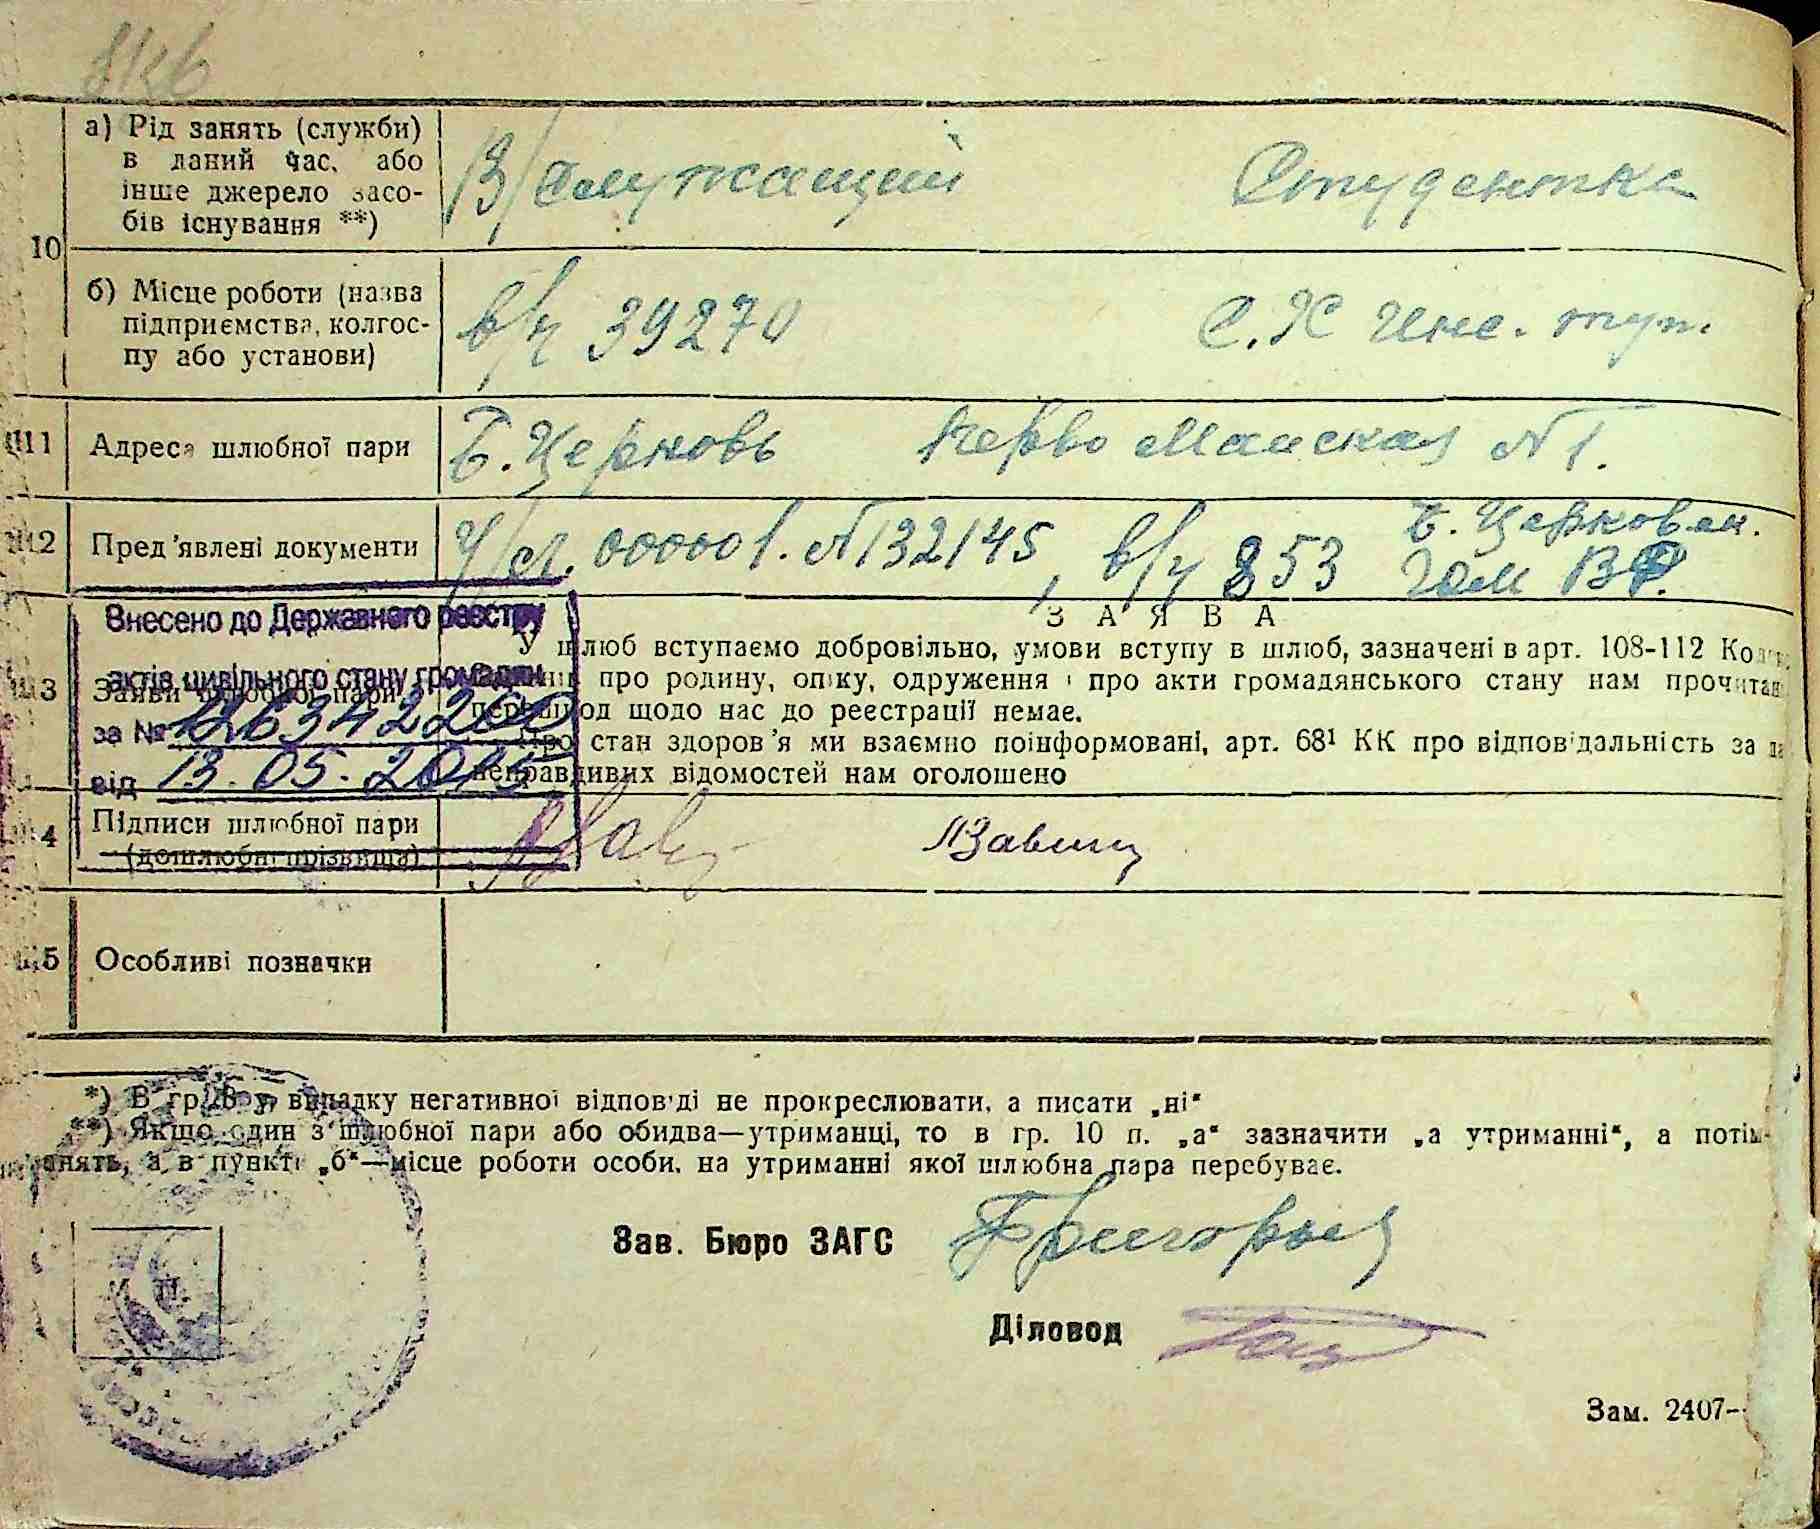 а) Рід занять (служби)
в даний час, або
інше джерело засо-
бів існування **)
В/служащий Студентка
10
б) Місце роботи (назва
підприємства, колгос-
пу або установи)
в/ч 39270 С.Х Инс. тут.
11 Адреса шлюбної пари Б.Церковь Перво Майская №1.
12 Пред'явлені документи У/л. 00000 1. №132145, в/ч 853 Б. Церковск.
ВФ.
Внесено до Державного реєстру
актів цивільного стану громадян
за №
від 13.05.2015
3 Заяви шлюбної пари
З А Я В А
У шлюб вступаємо добровільно, умови вступу в шлюб, зазначені в арт. 108-112
про родину, опіку, одруження і про акти громадянського стану нам прочитан
перешкод щодо нас до реестрації немає.
Про стан здоров'я ми взаємно поінформовані, арт. 68¹ КК про відповідальність за
неправдивих відомостей нам оголошено
4 Підписи шлюбної пари
(дошлюбні прізвища)
5 Особливі позначки
*) В гр. 8 у випадку негативної відповіді не прокреслювати, а писати „ні“
**) Якщо один з шлюбної пари або обидва—утриманці, то в гр. 10 п. „а“ зазначити „а утриманні“, а потім
занять, а в пункті „б“—місце роботи особи, на утриманні якої шлюбна пара перебуває.
М. П.
Зав. Бюро ЗАГС
Діловод
Зам. 2407-